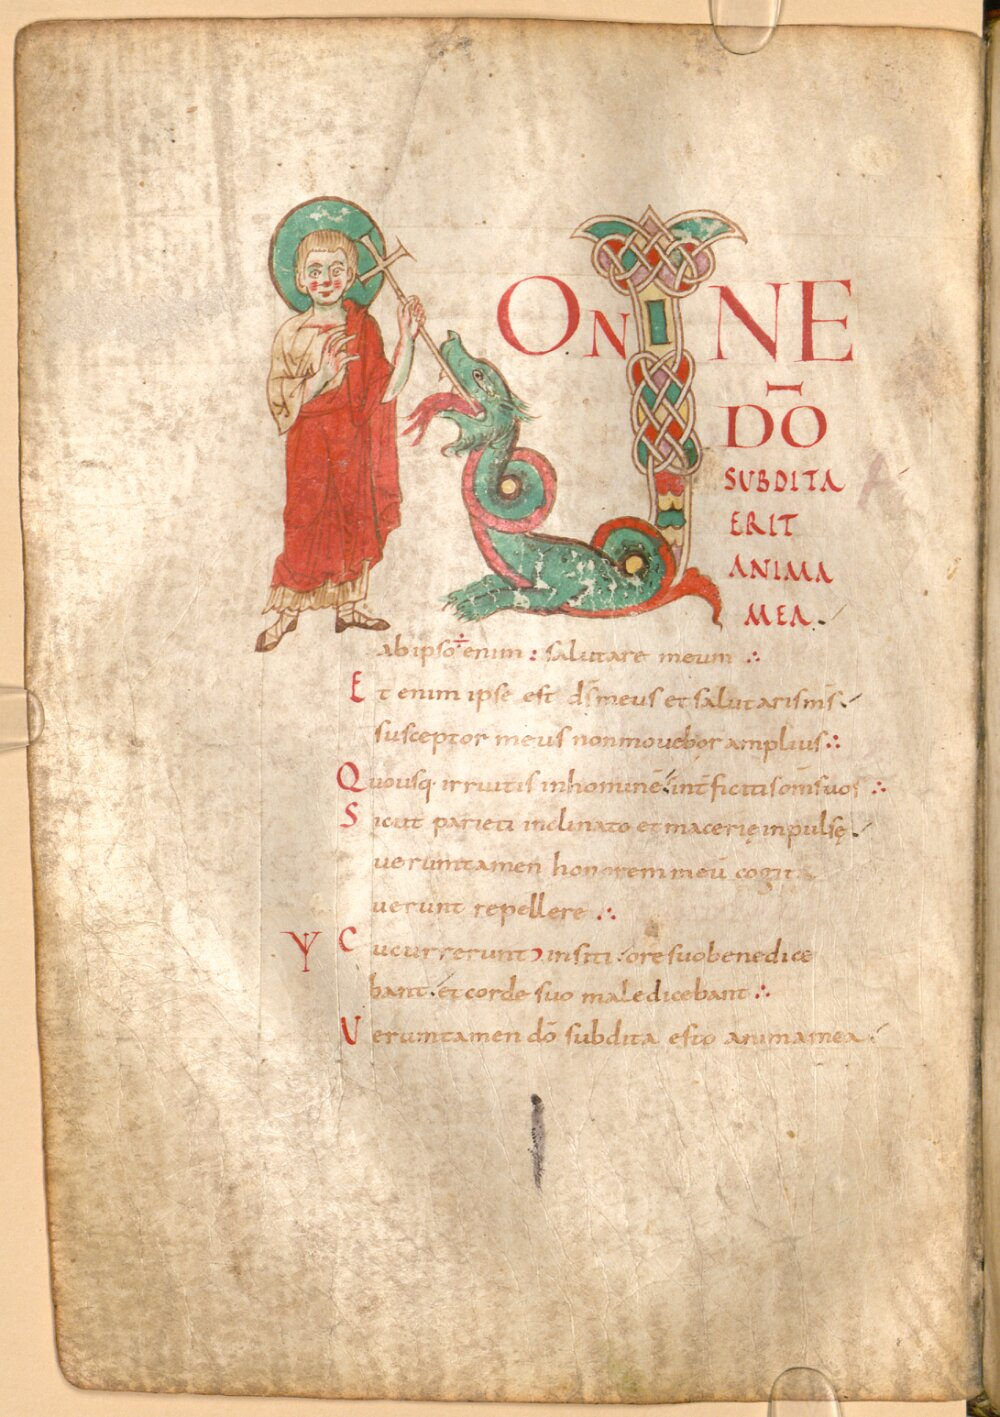 NONNE
DŌ
SUBDITA
ERIT
ANIMA
MEA.
ab ipso enim : salutare meum ∴
Et enim ipse est d̄s meus et salutaris m̄s.
susceptor meus non mouebor amplius ∴
Quousq. irruitis in hominē int̄ficitis om̄s uos ∴
Sicut parieti inclinato et macerię inpulsę.
uerumtamen honorem meū cogita
uerunt repellere ∴
Y Cucurrerunt in siti ore suo benedice
bant. et corde suo maledicebant ∴
Uerumtamen dō subdita esto anima mea